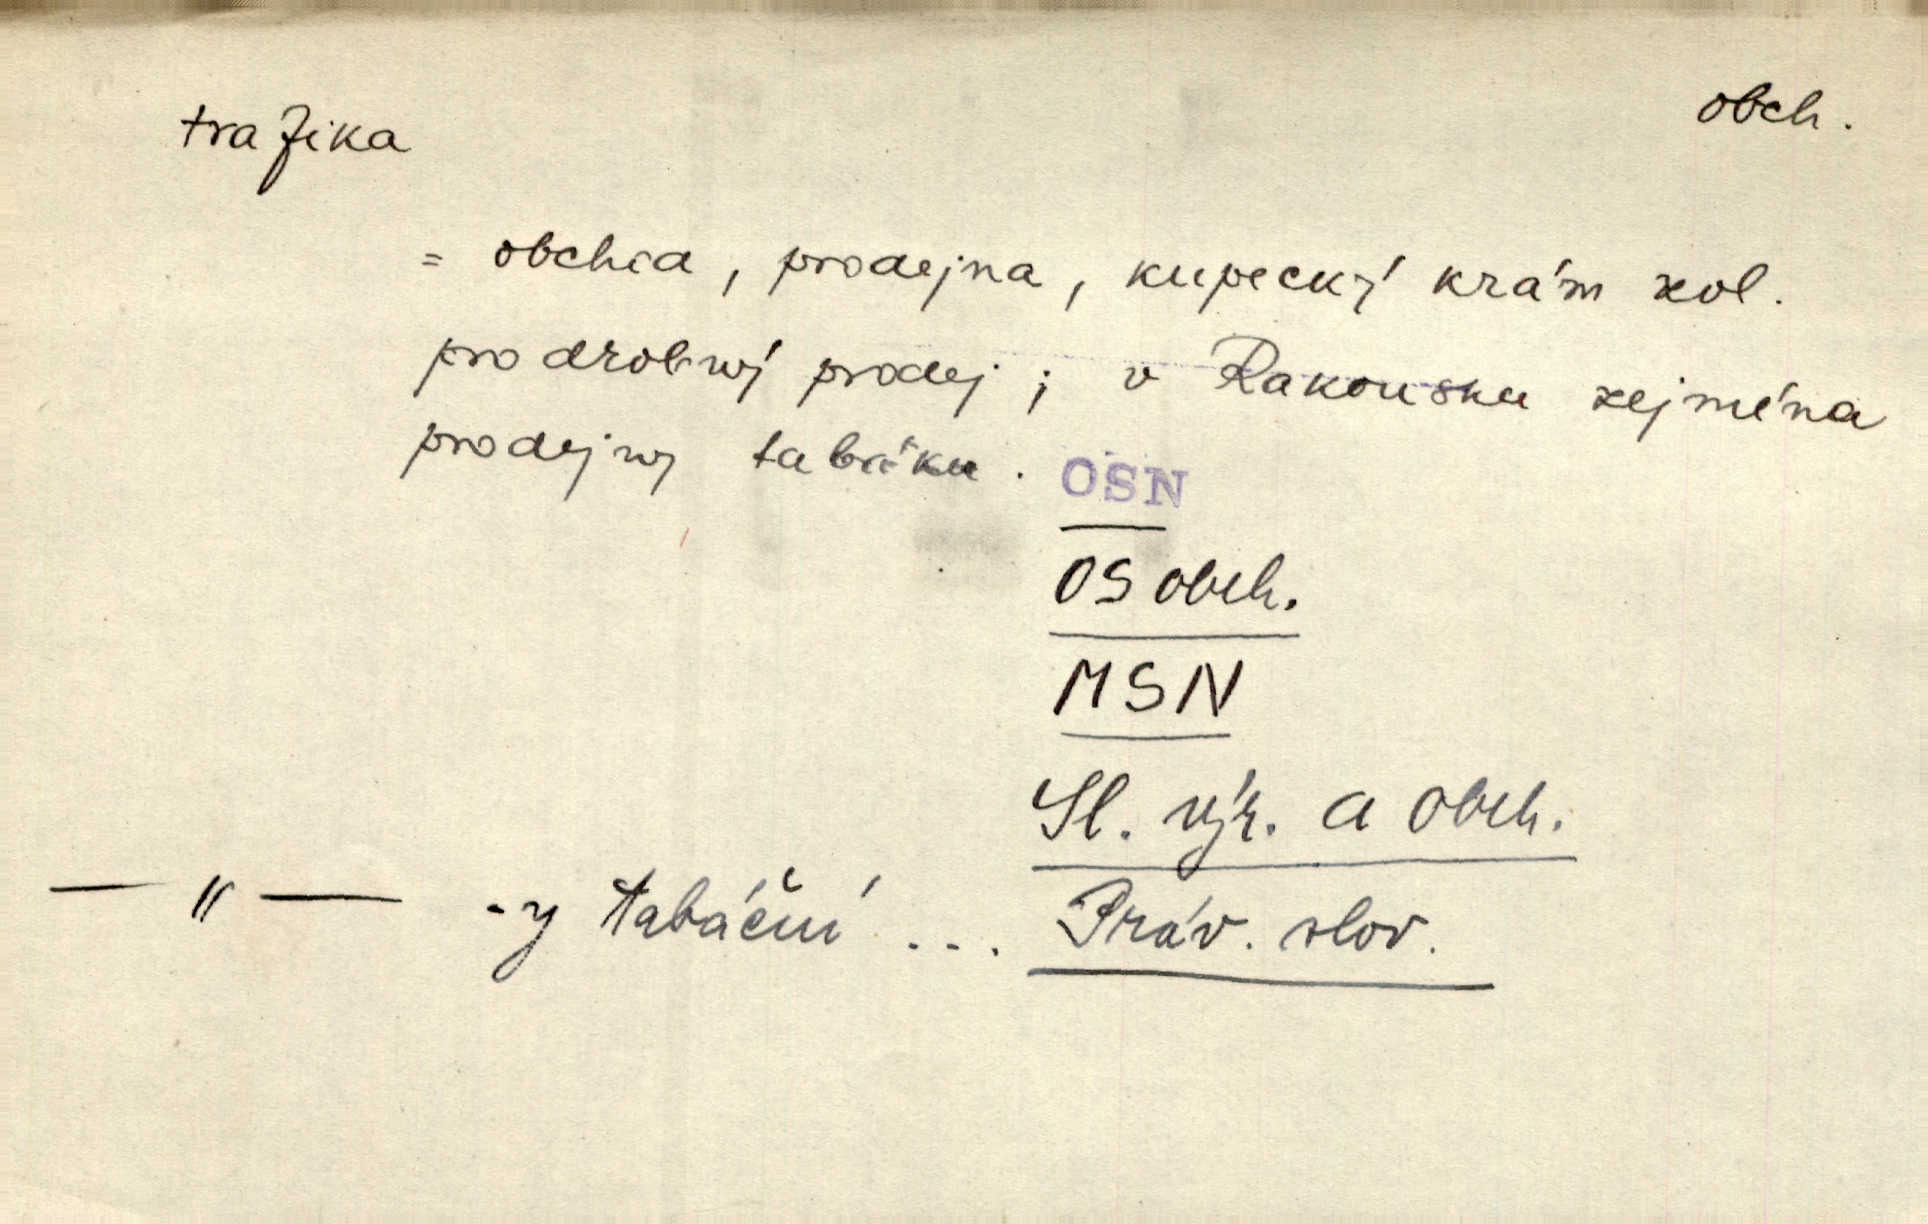 trafika obch.
= obchod, prodejna, kupecký krám zvl.
pro drobný prodej; v Rakousku zejména
prodejny tabáku. OSN
OS obch.
MSN
Sl. výr. a obch.
—〃— -y tabáční ... Práv. slov.